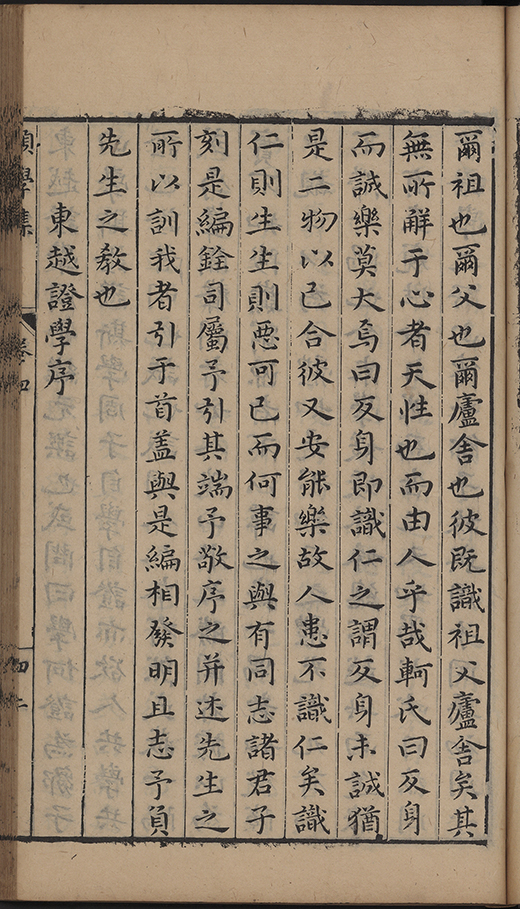 爾祖也爾父也爾廬舍也彼既識祖父廬舍矣其
無所解于心者天性也而由人乎哉軻氏曰反身
而誠樂莫大焉曰反身即識仁之謂反身未誠猶
是二物以己合彼又安能樂故人患不識仁矣識
仁則生生則惡可已而何事之與有同志諸君子
刻是編銓司屬予引其端予敬序之并述先生之
所以訓我者引于首蓋與是編相發明且志予負
先生之教也
東越證學序
願學集
卷四
四十二